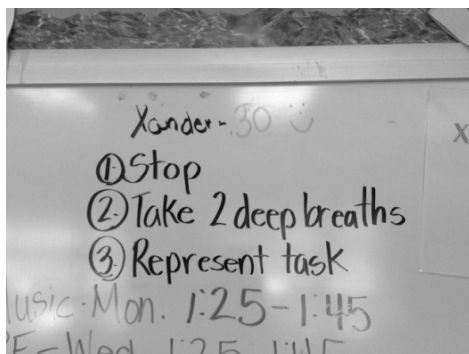 Xander - 30
① Stop
② Take 2 deep breaths
③ Represent task
Music - Mon. 1:25-1:45
PE - Wed. 1:25-1:45
X